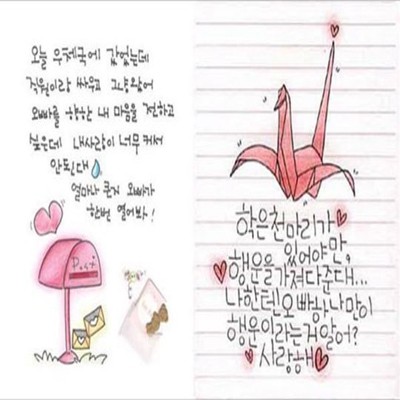 오늘 우체국에 갔었는데
직원이랑 싸우고 그냥왔어
오빠를 향한 내 마음을 전하고
싶은데 내사랑이 너무 커서
안된대
얼마나 큰지 오빠가
한번 열어봐!
Post
학은천마리가
있어야만,
행운을가져다준대...
나한텐오빠하나만이
행운이라는거알어?
사랑해